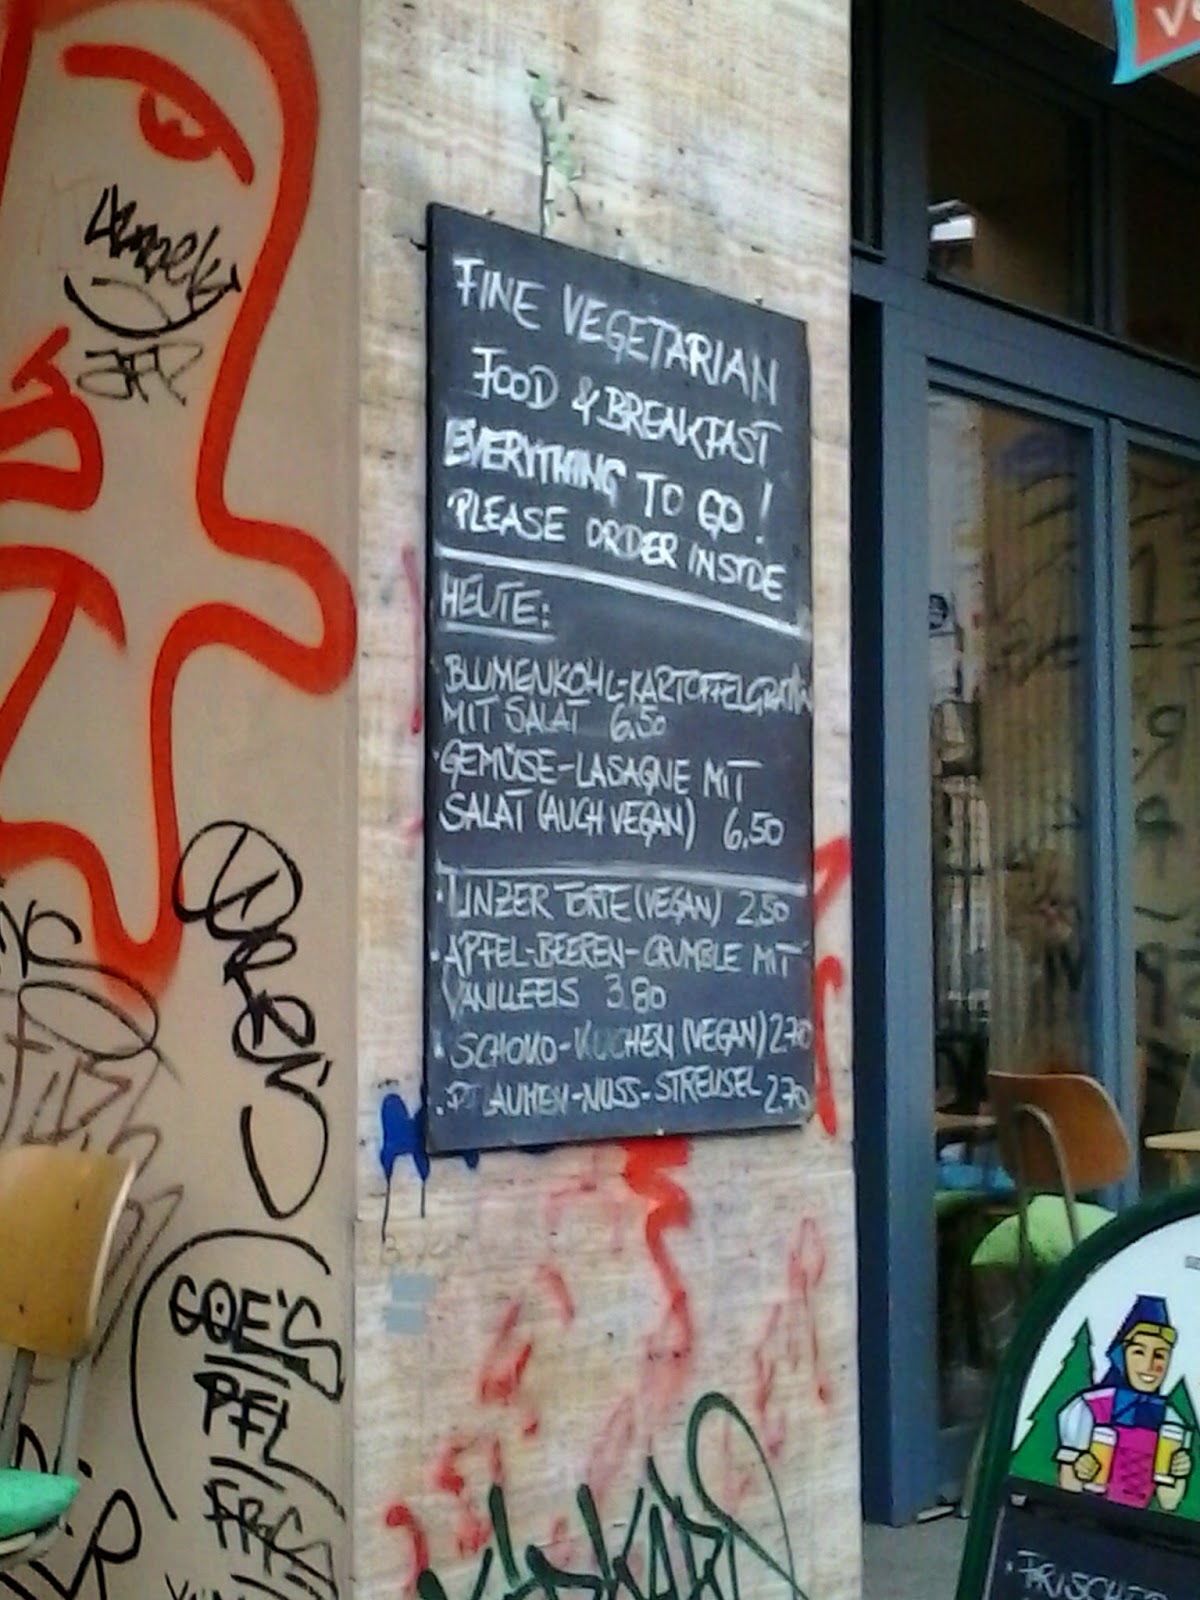 FINE VEGETARIAN
FOOD & BREAKFAST
EVERYTHING TO GO!
PLEASE ORDER INSIDE
HEUTE:
· BLUMENKOHL-KARTOFFELGRATIN
MIT SALAT 6.50
· GEMÜSE-LASAGNE MIT
SALAT (AUCH VEGAN) 6,50
· LINZER TORTE (VEGAN) 2,50
· APFEL-BEEREN-CRUMBLE MIT
VANILLEEIS 3.80
· SCHOKO-KUCHEN (VEGAN) 2.70
· PFLAUMEN-NUSS-STREUSEL 2.70
GOE'S
PFL
· FRISCHER